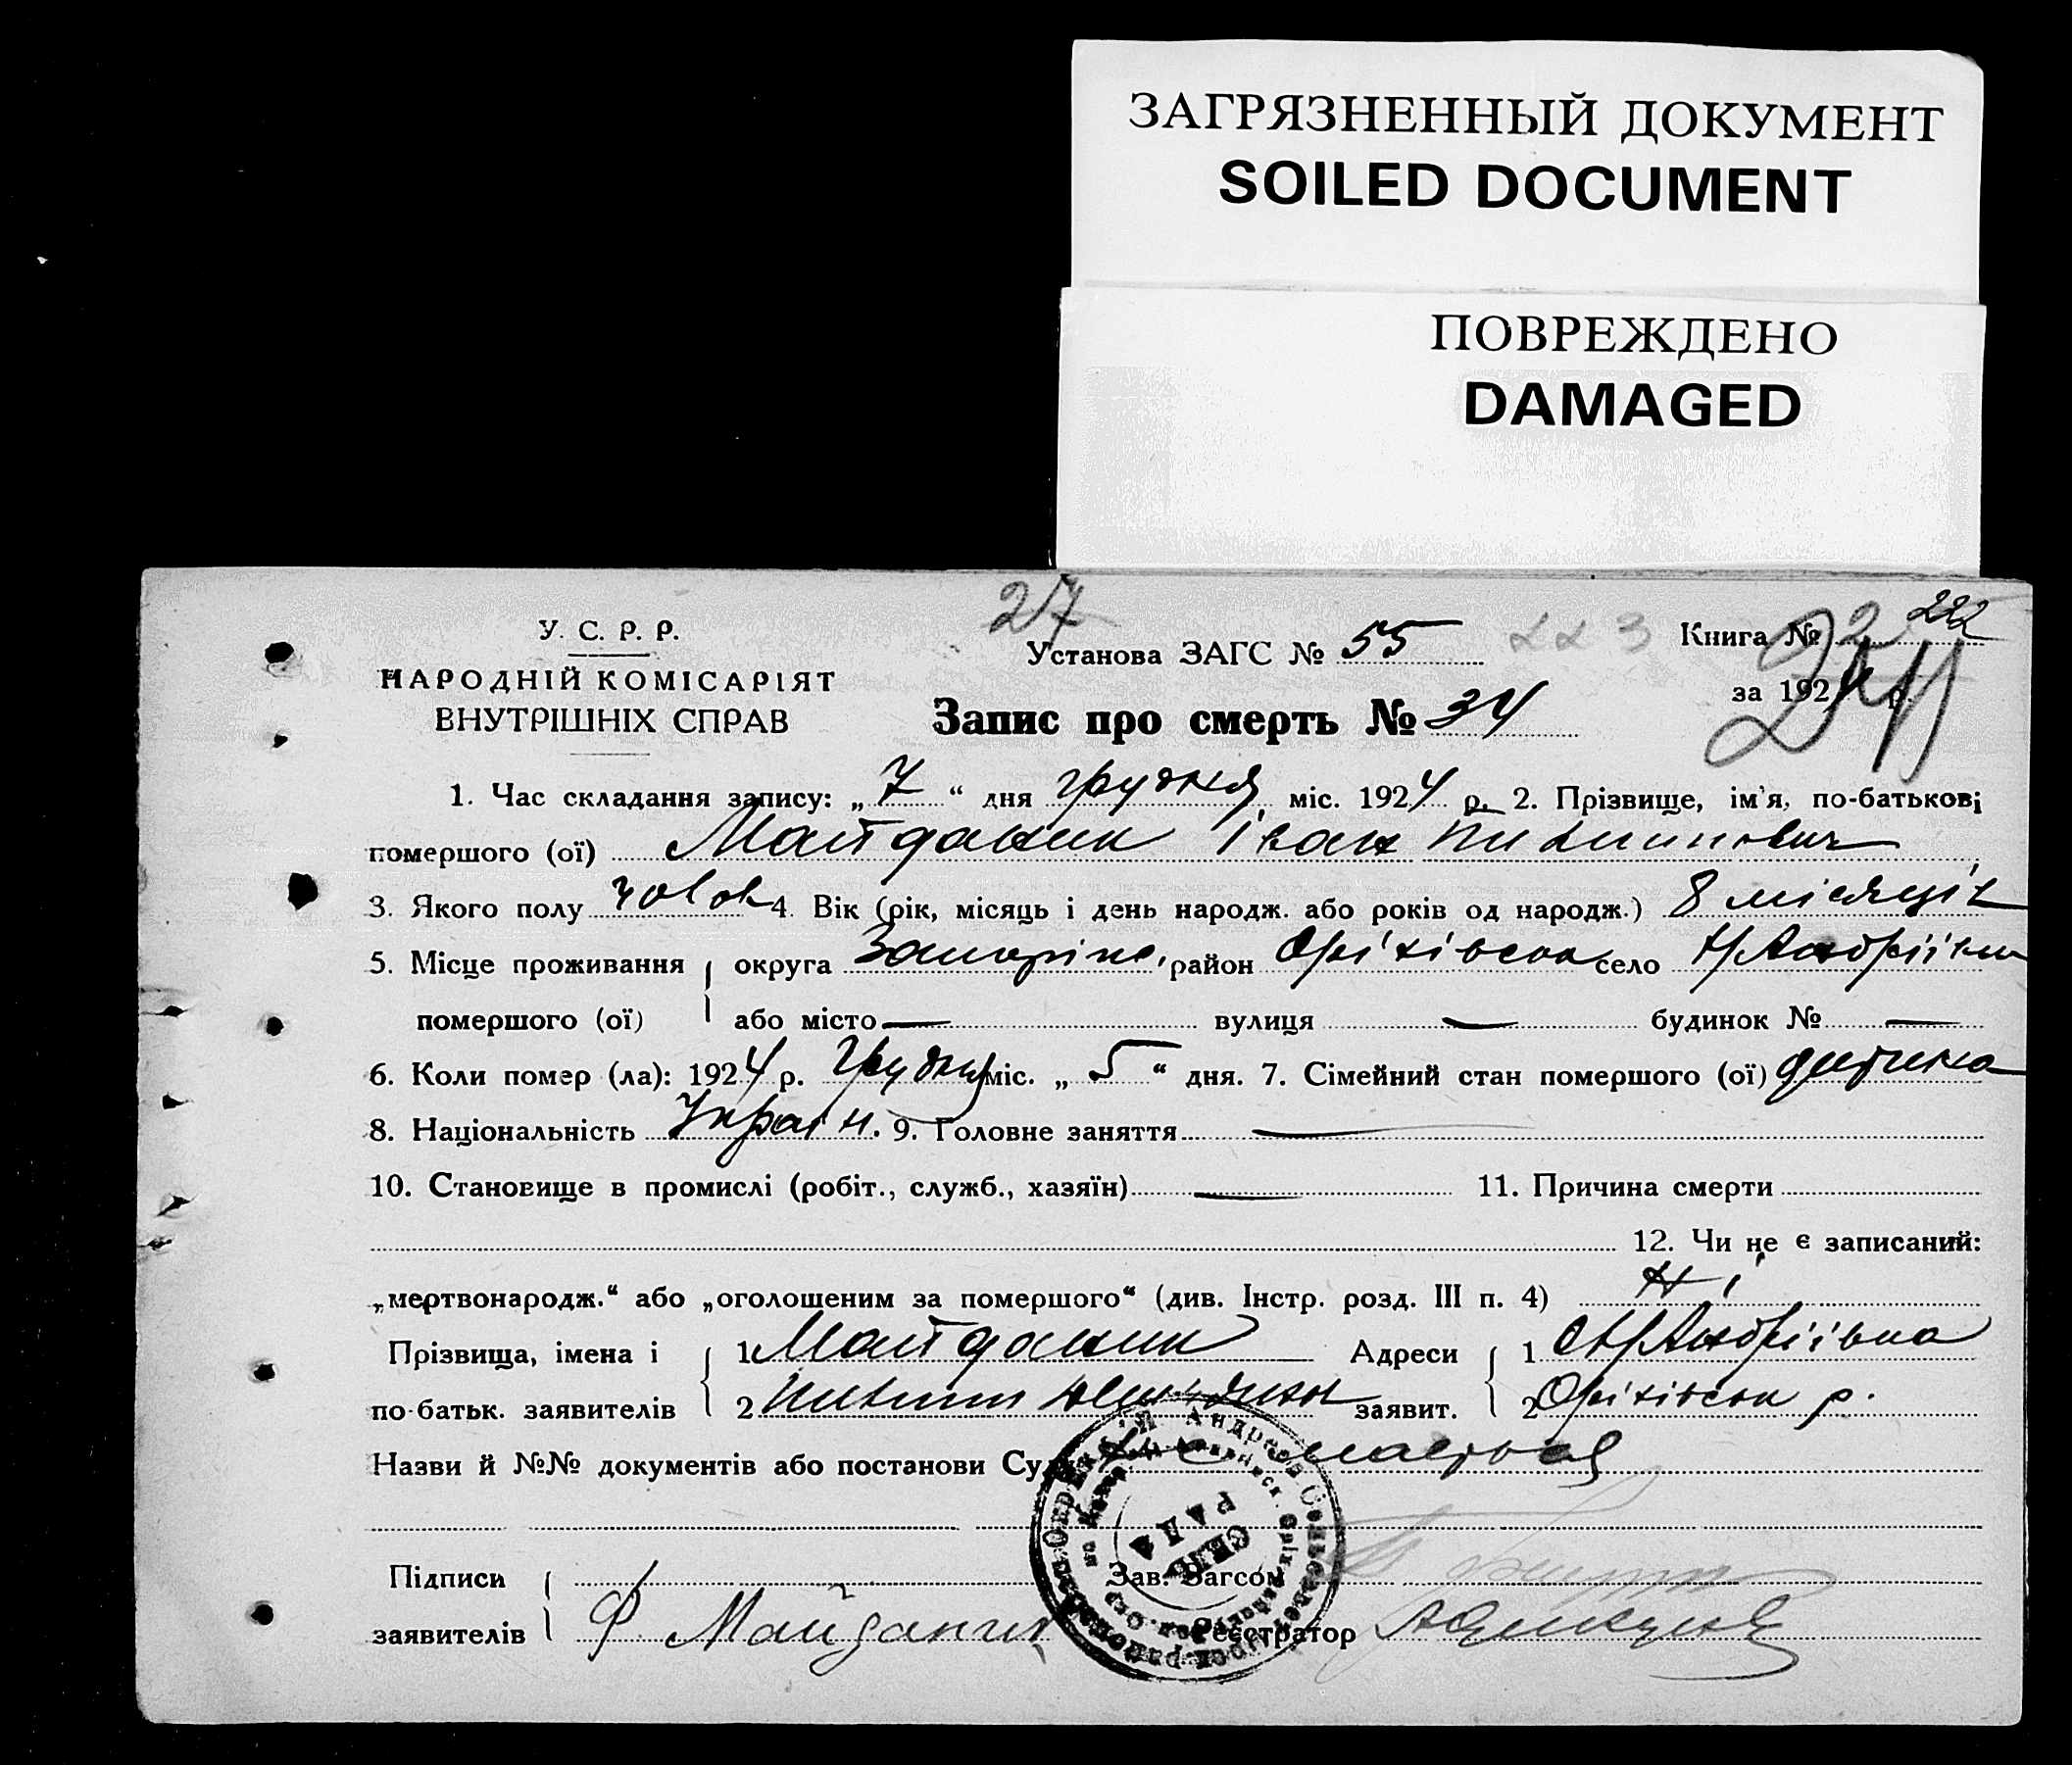 ЗАГРЯЗНЕННЫЙ ДОКУМЕНТ
SOILED DOCUMENT
ПОВРЕЖДЕНО
DAMAGED
27
У. С. Р. Р.
НАРОДНІЙ КОМІСАРІЯТ
ВНУТРІШНІХ СПРАВ
Установа ЗАГС № 55 223
Книга № 2 222
за 1924 р.
Запис про смерть № 34
1. Час складання запису: „7“ дня грудня міс. 1924 р. 2. Прізвище, ім'я, по-батькові
помершого (ої) Майданик Іван
3. Якого полу чолов 4. Вік (рік, місяць і день народж. або років од народж.) 8 місяців
5. Місце проживання округа Запоріжс, район Оріхівськ село Н/Андріївка
помершого (ої) або місто — вулиця — будинок № —
6. Коли помер (ла): 1924 р. Грудня міс. „5“ дня. 7. Сімейний стан помершого (ої) дитина
8. Національність Україн. 9. Головне заняття —
10. Становище в промислі (робіт., служб., хазяїн) — 11. Причина смерти
12. Чи не є записаний:
„мертвонародж.“ або „оголошеним за помершого“ (див. Інстр. розд. III п. 4) Ні
Прізвища, імена і 1 Майданик Адреси 1 Н/Андріївка
по-батьк. заявителів 2 заявит. 2 Оріхівськ р.
Назви й №№ документів або постанови
СЕЛЬ
РАДА
Підписи Зав. Загсом
заявителів Ф. Майданик Реєстратор